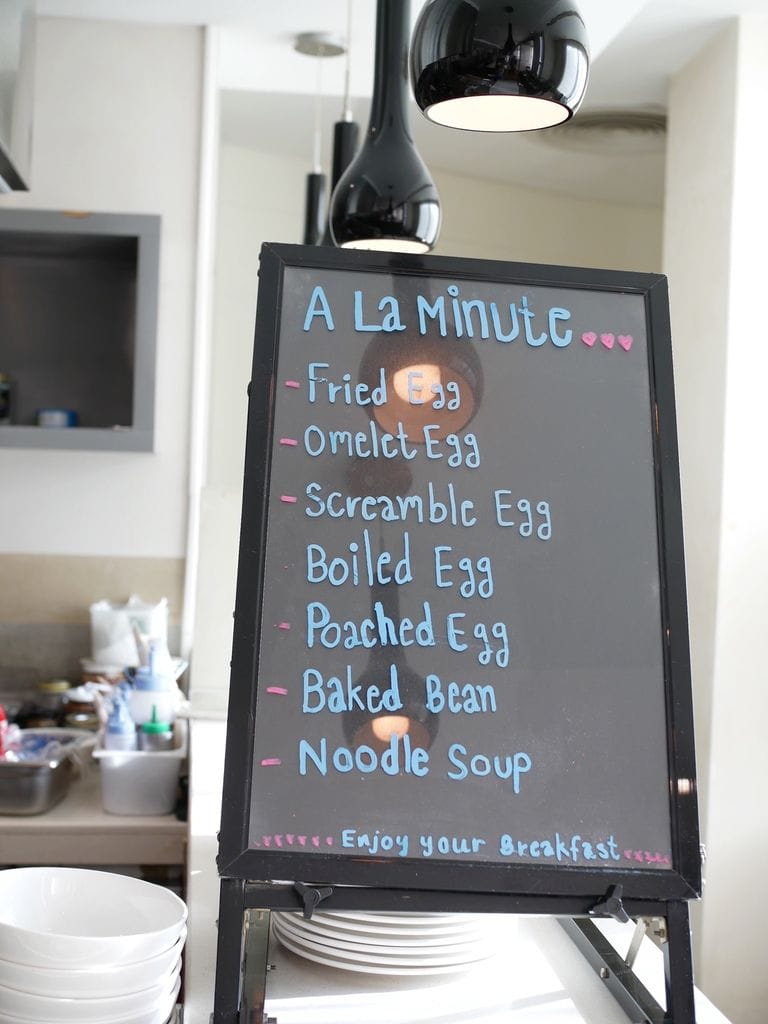 A La Minute...
- Fried Egg
- Omelet Egg
- Screamble Egg
Boiled Egg
- Poached Egg
- Baked Bean
- Noodle Soup
Enjoy your Breakfast